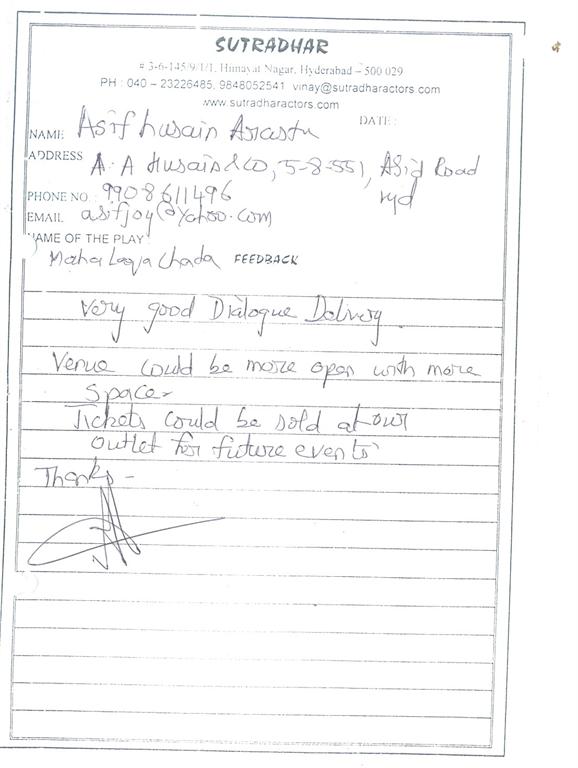 SUTRADHAR
# 3-6-145/9/1/1, Himayat Nagar, Hyderabad – 500 029
PH : 040 – 23226485, 9848052541 vinay@sutradharactors.com
www.sutradharactors.com
DATE :
NAME Asif Husain Arastu
ADDRESS A. A Husain & CO, 5-8-551, Abid Road
Hyd
PHONE NO. : 9908611496
EMAIL asifjoy@yahoo.com
NAME OF THE PLAY :
Maha Laqa Chada FEEDBACK
Very good Dialogue Delivery.
Venue could be more open with more
space-
Tickets could be sold at our
outlet for future events
Thanks -